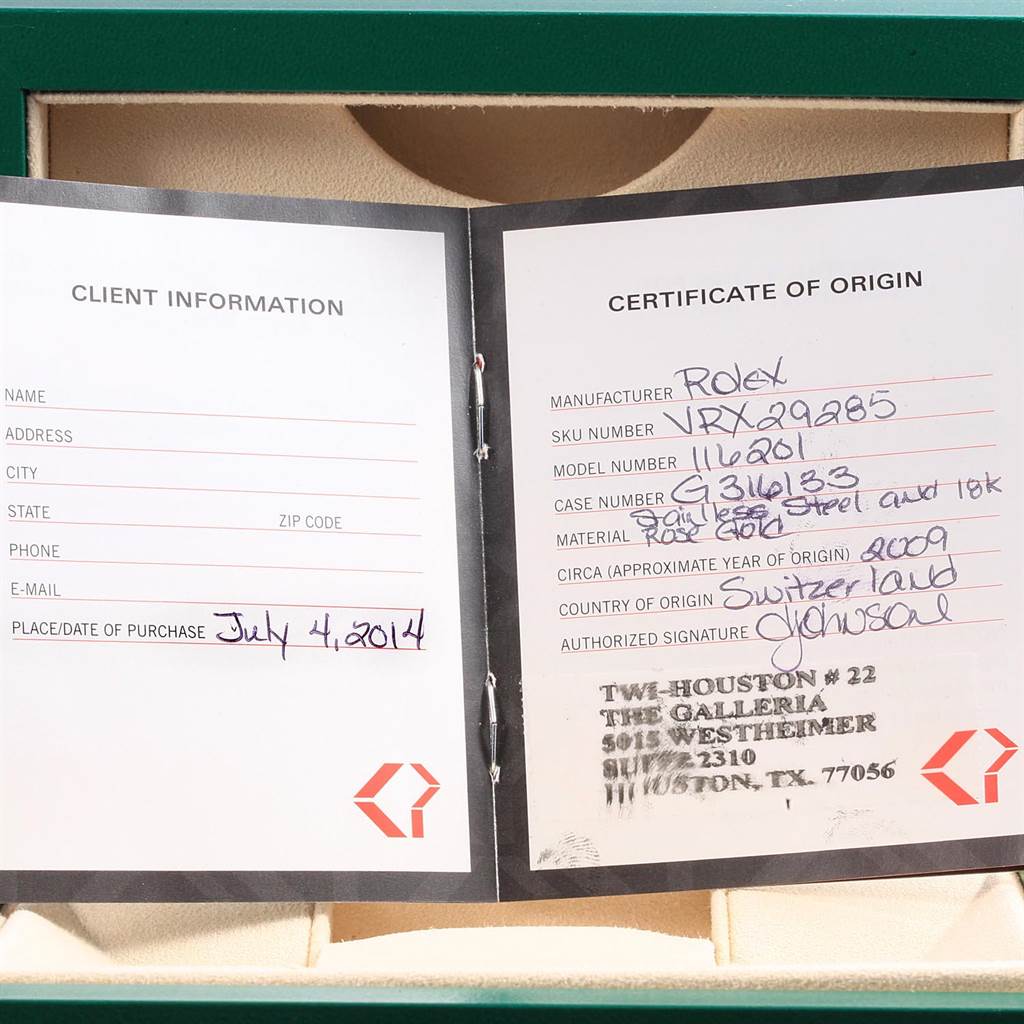 CLIENT INFORMATION
NAME
ADDRESS
CITY
STATE ZIP CODE
PHONE
E-MAIL
PLACE/DATE OF PURCHASE July 4, 2014
CERTIFICATE OF ORIGIN
MANUFACTURER Rolex
SKU NUMBER VRX29285
MODEL NUMBER 116201
CASE NUMBER G316133
MATERIAL Stainless Steel and 18k
Rose Gold
CIRCA (APPROXIMATE YEAR OF ORIGIN) 2009
COUNTRY OF ORIGIN Switzerland
AUTHORIZED SIGNATURE GJohnson
TWI-HOUSTON # 22
THE GALLERIA
5015 WESTHEIMER
SUITE 2310
HOUSTON, TX. 77056